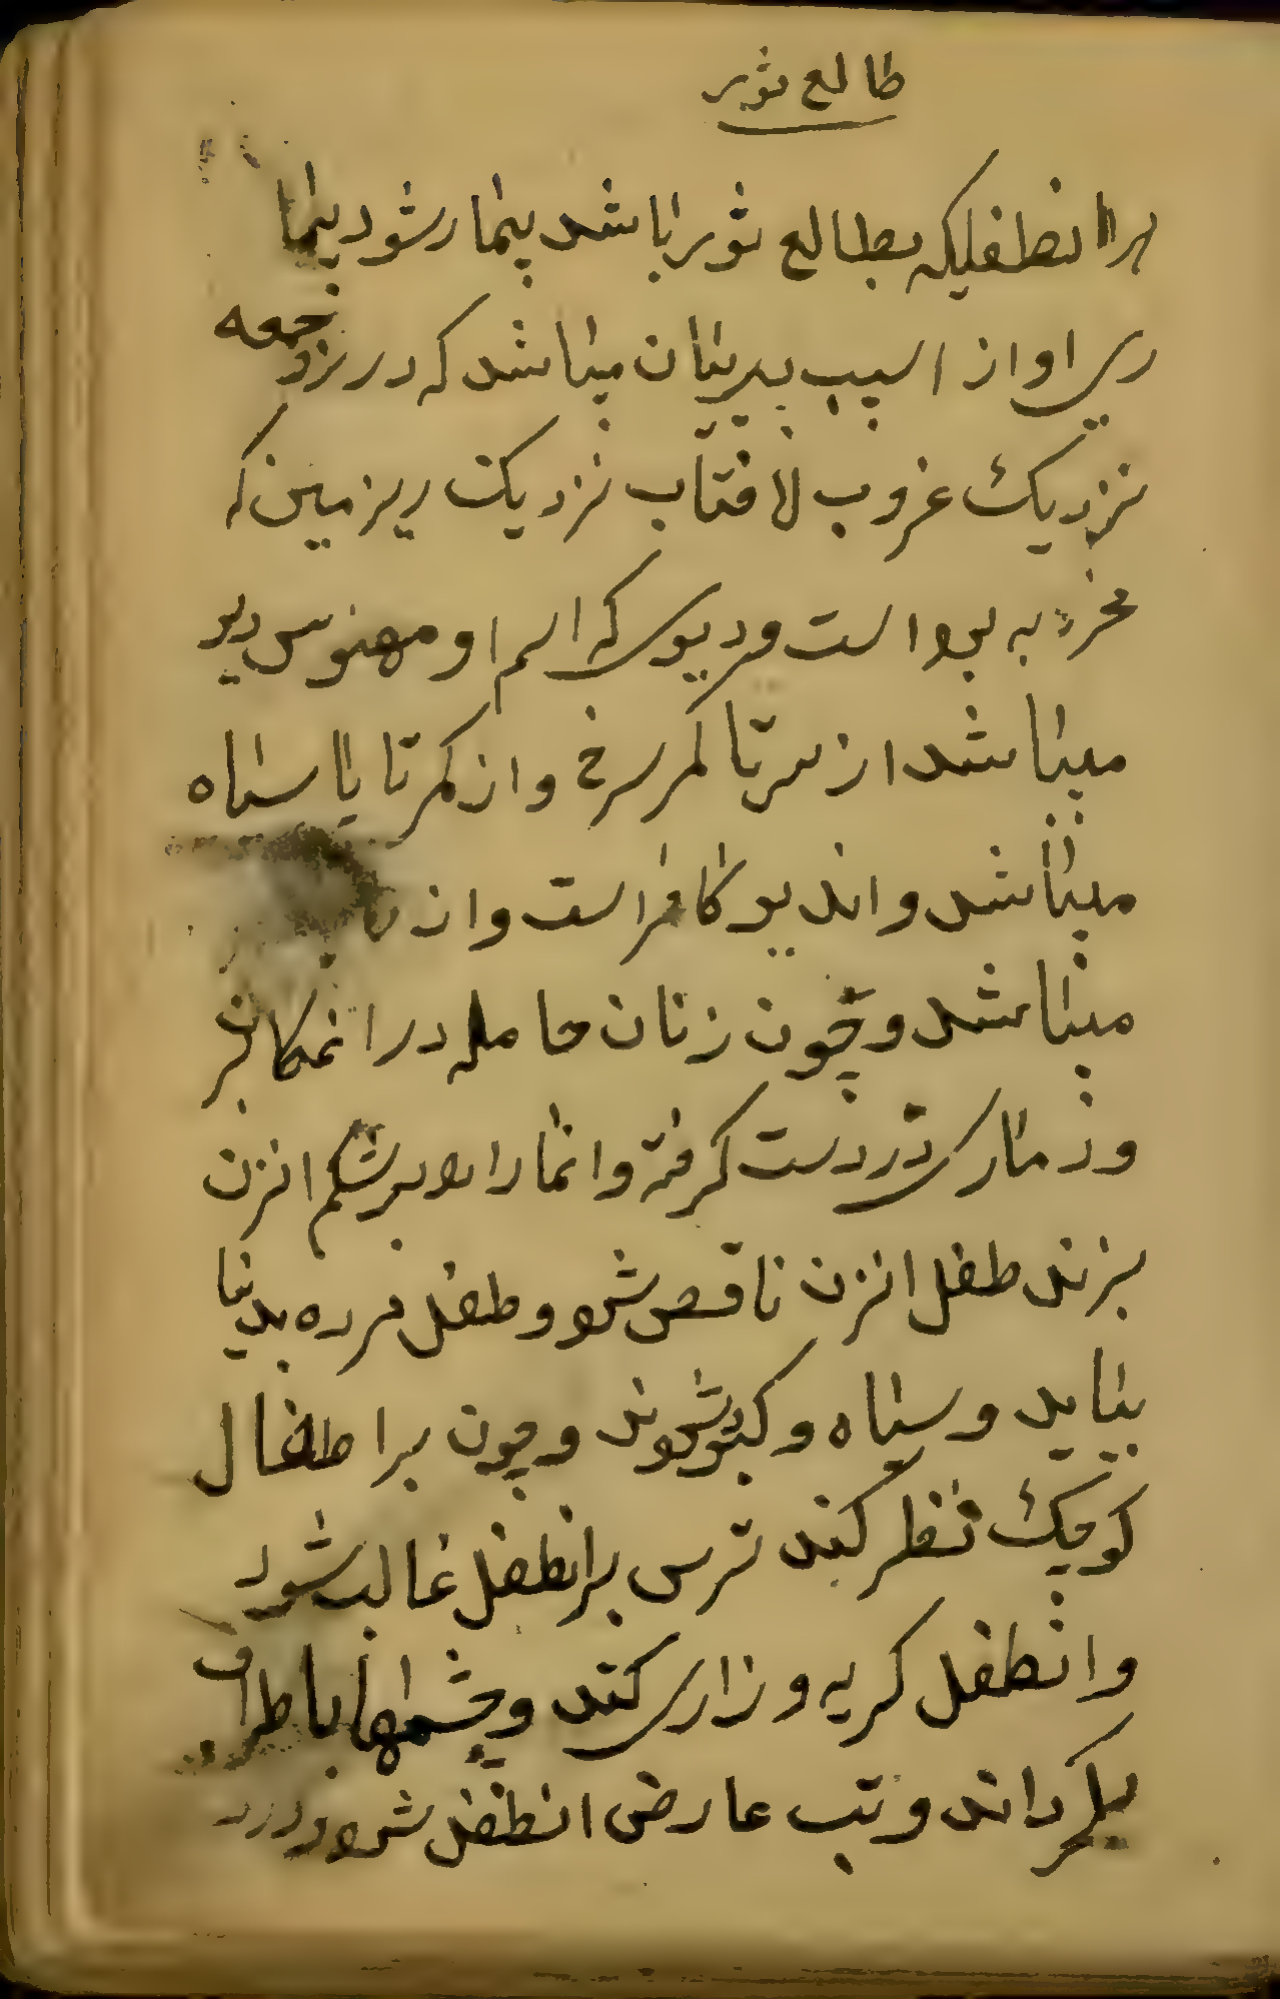 طالع ثور
هر انطفلیکه بطالع ثور باشد بیمار شود بیما
ری او از اسیب پریان میباشد که در روز جمعه
نزدیک غروب افتاب نزدیک ریز مین که
مخر به بوداست و دیوی که اسم او مهنوس دیو
میباشد از سر تا کمر سرخ و از کمر تا پا سیاه
میباشد و اندیو کافر است و از
میباشد و چون زنان حامله در انمکان
و ز ماری در دست گرفته و انمار را بر شکم انزن
بزند طفل انزن ناقص شود و طفل مرده بدنیا
بیاید و سیاه و کبود شوند و چون بر اطفال
کوچک نظر کند ترس بر انطفل غالب شود
و انطفل کریه و زاری کند و چشمها باطراف
بگرداند و تب عارض انطفل شود و درد